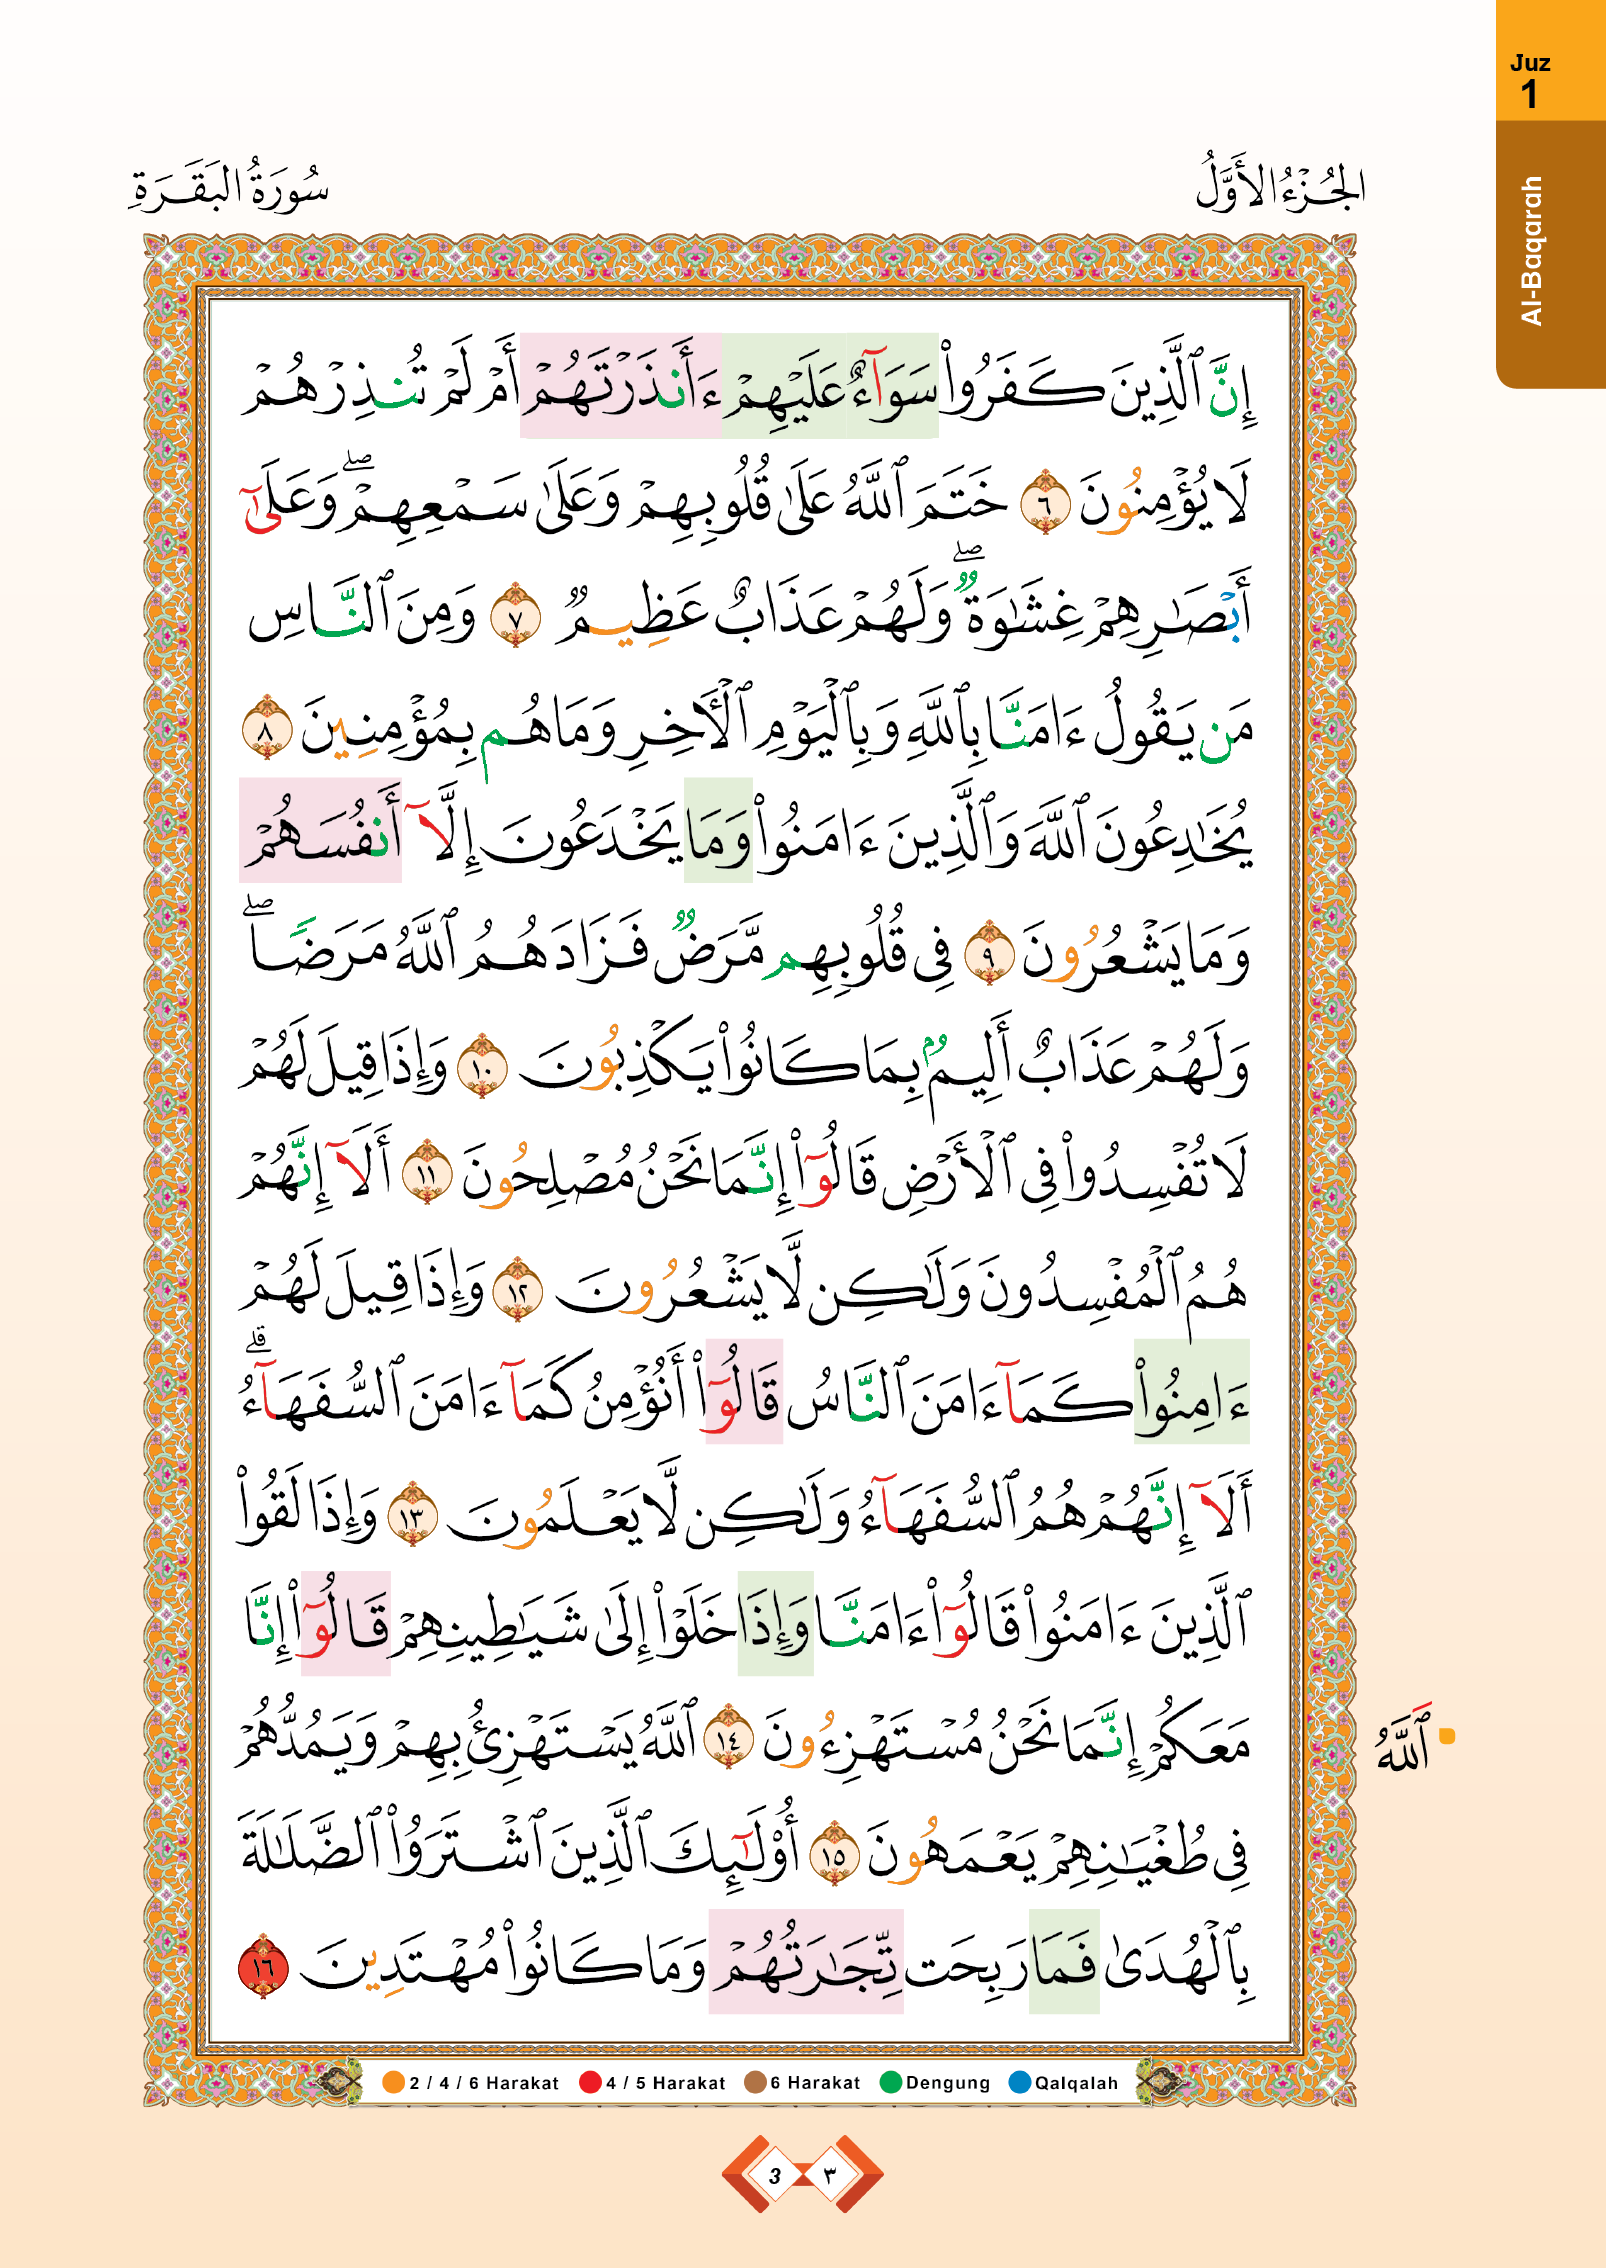 Juz
1
Al-Baqarah
الجُزْءُ الأَوَّلُ
سُورَةُ البَقَرَةِ
إِنَّ ٱلَّذِينَ كَفَرُوا۟ سَوَآءٌ عَلَيْهِمْ ءَأَنذَرْتَهُمْ أَمْ لَمْ تُنذِرْهُمْ
لَا يُؤْمِنُونَ ٦ خَتَمَ ٱللَّهُ عَلَىٰ قُلُوبِهِمْ وَعَلَىٰ سَمْعِهِمْ ۖ وَعَلَىٰٓ
أَبْصَٰرِهِمْ غِشَٰوَةٌ ۖ وَلَهُمْ عَذَابٌ عَظِيمٌ ٧ وَمِنَ ٱلنَّاسِ
مَن يَقُولُ ءَامَنَّا بِٱللَّهِ وَبِٱلْيَوْمِ ٱلْأَخِرِ وَمَا هُم بِمُؤْمِنِينَ ٨
يُخَٰدِعُونَ ٱللَّهَ وَٱلَّذِينَ ءَامَنُوا۟ وَمَا يَخْدَعُونَ إِلَّآ أَنفُسَهُمْ
وَمَا يَشْعُرُونَ ٩ فِى قُلُوبِهِم مَّرَضٌ فَزَادَهُمُ ٱللَّهُ مَرَضًا ۖ
وَلَهُمْ عَذَابٌ أَلِيمٌۢ بِمَا كَانُوا۟ يَكْذِبُونَ ١٠ وَإِذَا قِيلَ لَهُمْ
لَا تُفْسِدُوا۟ فِى ٱلْأَرْضِ قَالُوٓا۟ إِنَّمَا نَحْنُ مُصْلِحُونَ ١١ أَلَآ إِنَّهُمْ
هُمُ ٱلْمُفْسِدُونَ وَلَٰكِن لَّا يَشْعُرُونَ ١٢ وَإِذَا قِيلَ لَهُمْ
ءَامِنُوا۟ كَمَآ ءَامَنَ ٱلنَّاسُ قَالُوٓا۟ أَنُؤْمِنُ كَمَآ ءَامَنَ ٱلسُّفَهَآءُ ۗ
أَلَآ إِنَّهُمْ هُمُ ٱلسُّفَهَآءُ وَلَٰكِن لَّا يَعْلَمُونَ ١٣ وَإِذَا لَقُوا۟
ٱلَّذِينَ ءَامَنُوا۟ قَالُوٓا۟ ءَامَنَّا وَإِذَا خَلَوْا۟ إِلَىٰ شَيَٰطِينِهِمْ قَالُوٓا۟ إِنَّا
مَعَكُمْ إِنَّمَا نَحْنُ مُسْتَهْزِءُونَ ١٤ ٱللَّهُ يَسْتَهْزِئُ بِهِمْ وَيَمُدُّهُمْ
فِى طُغْيَٰنِهِمْ يَعْمَهُونَ ١٥ أُو۟لَٰٓئِكَ ٱلَّذِينَ ٱشْتَرَوُا۟ ٱلضَّلَٰلَةَ
بِٱلْهُدَىٰ فَمَا رَبِحَت تِّجَٰرَتُهُمْ وَمَا كَانُوا۟ مُهْتَدِينَ ١٦
ٱللَّهُ
2 / 4 / 6 Harakat 4 / 5 Harakat 6 Harakat Dengung Qalqalah
3 ٣